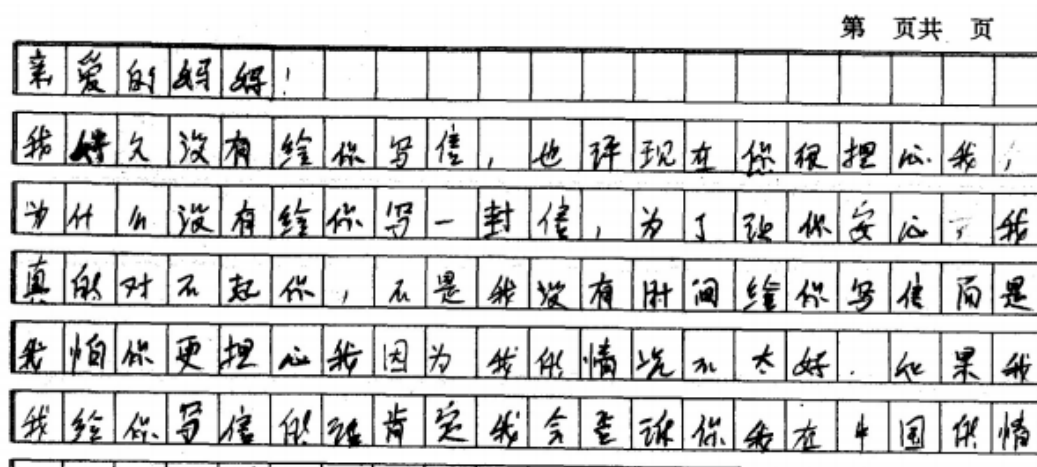 第 页共 页
亲爱的妈妈!
我好久没有给你写信,也许现在你很担心我,
为什么没有给你写一封信,为了让你安心,我
真的对不起你,不是我没有时间给你写信而是
我怕你更担心我因为我的情况不太好.如果我
我给你写信的话肯定我会告诉你我在中国的情